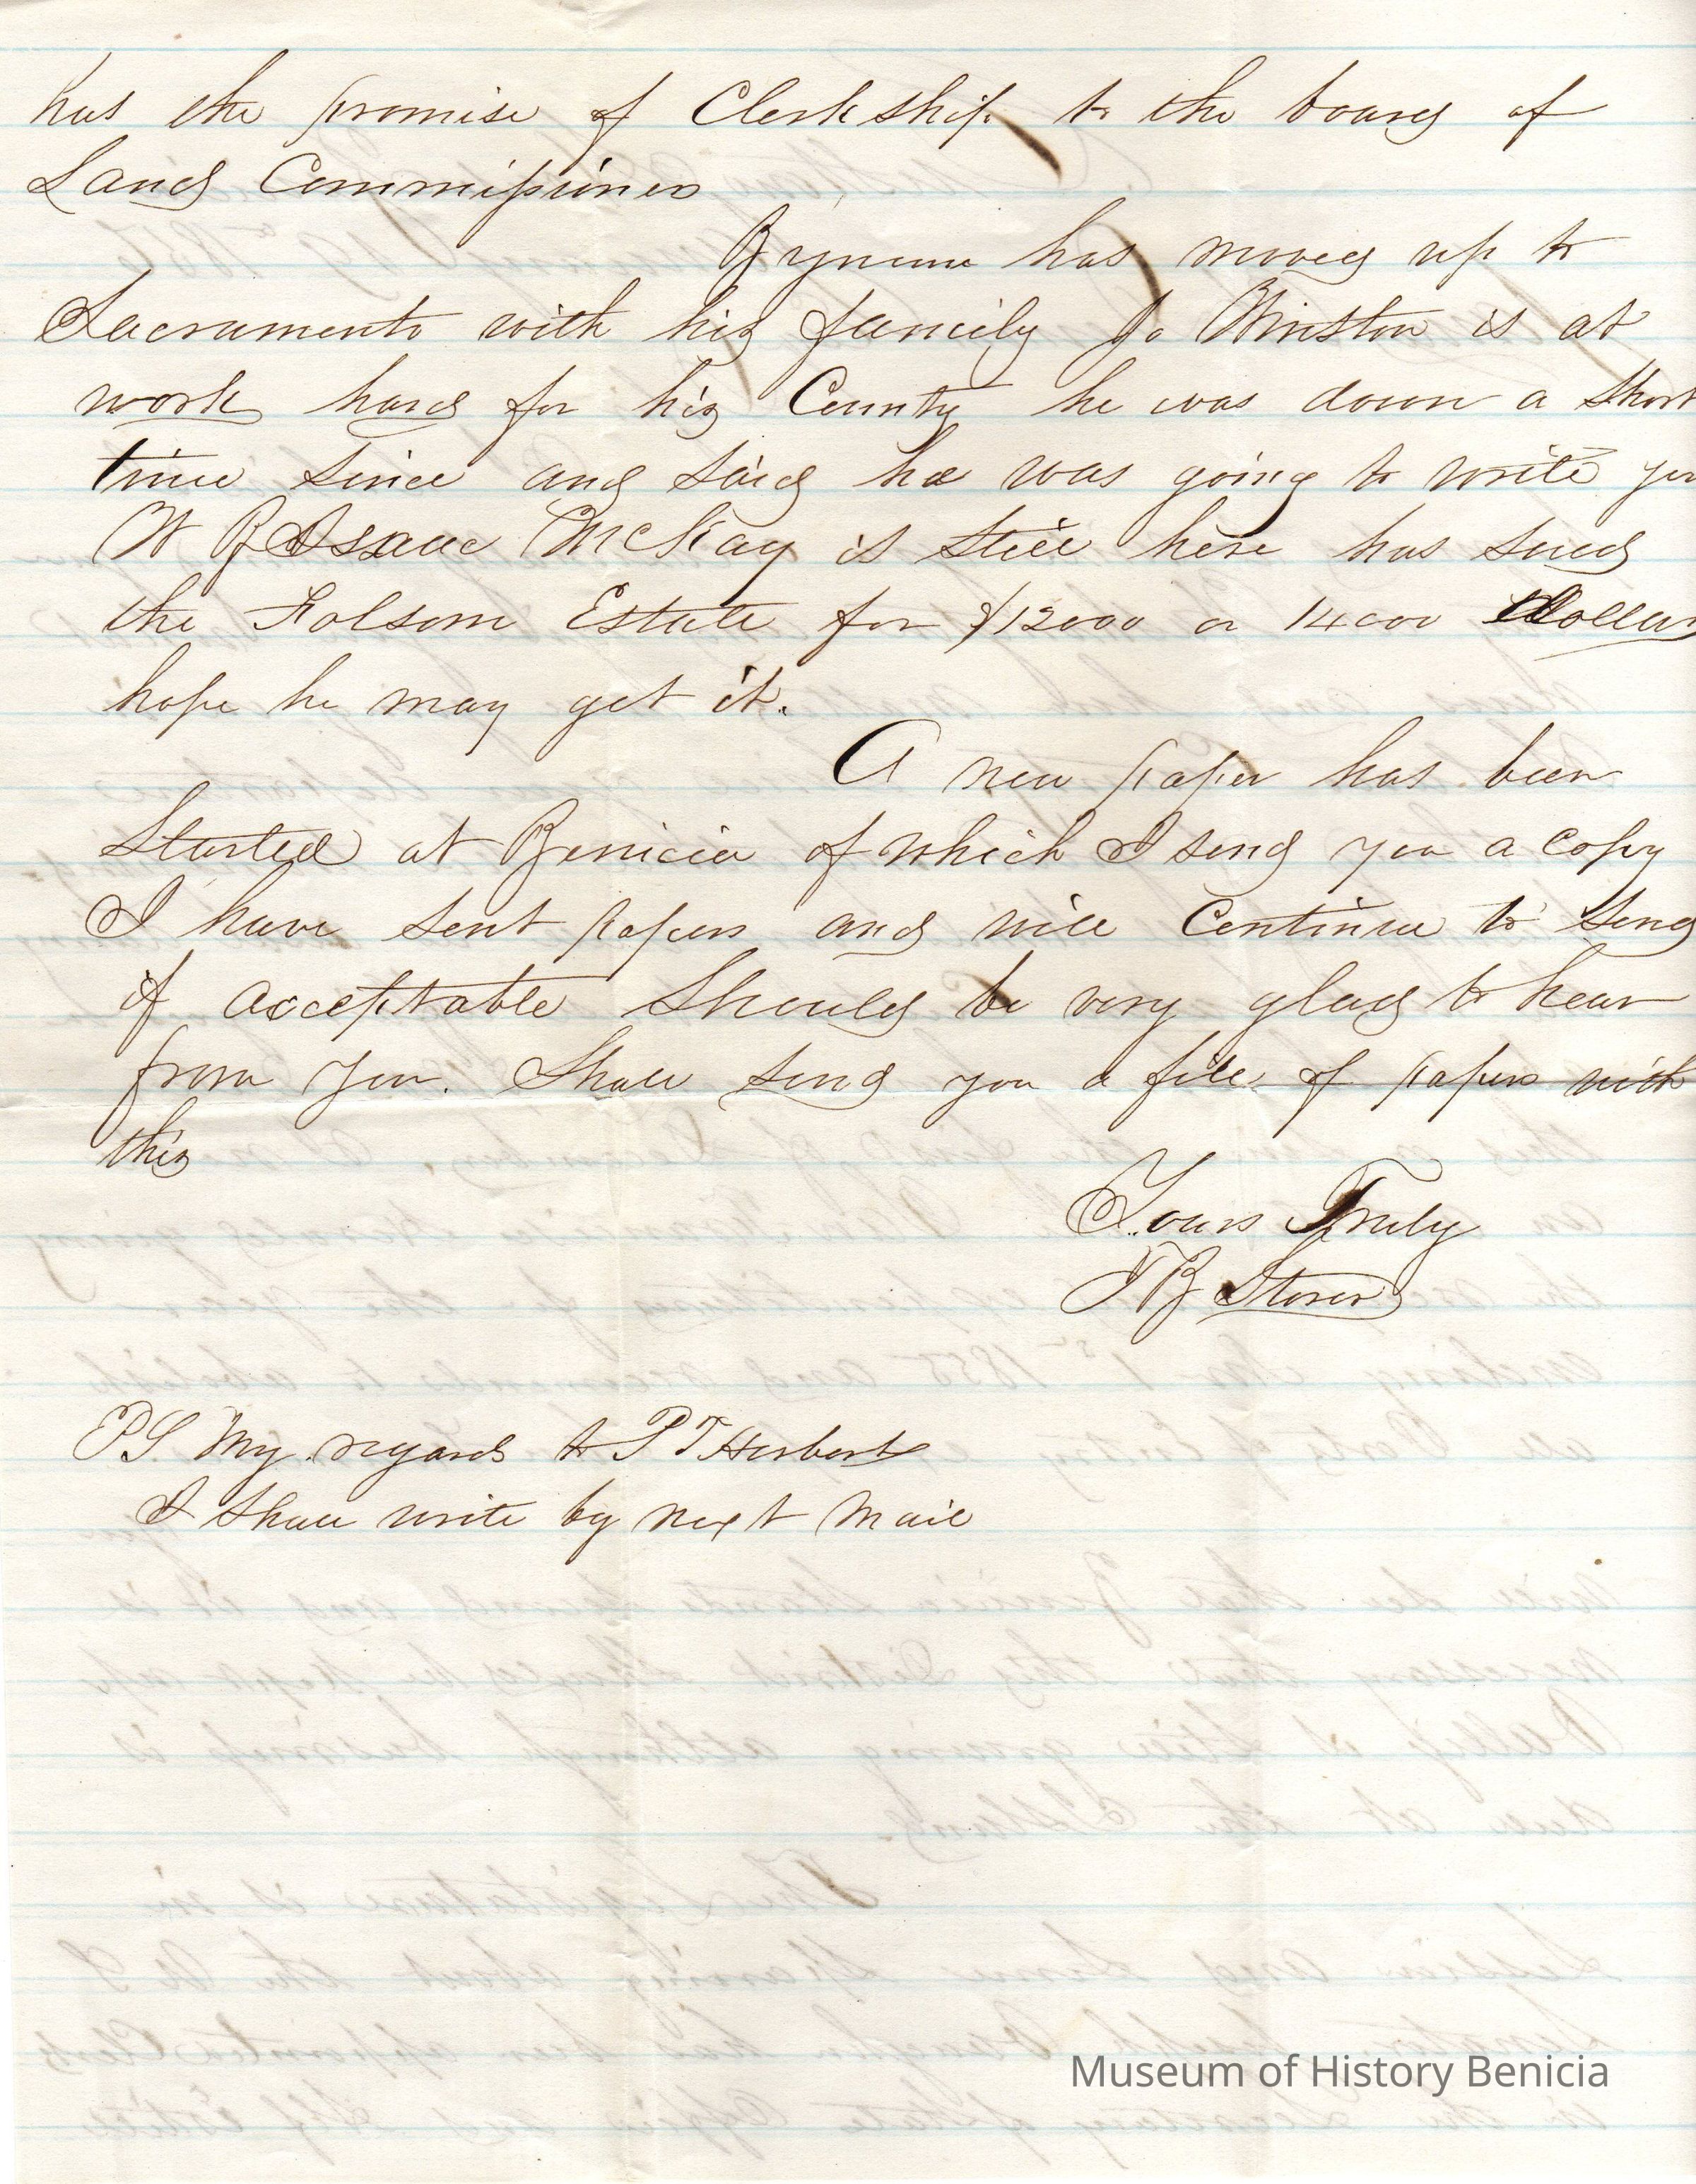 has the promise of Clerkship to the board of
Land Commissioners
has moved up to
Sacramento with his family Jo Winston is at
work hard for his County he was down a short
time since and said he was going to write you
W B Isaac McKay is still here has sued
the Folsom Estate for $12000 or 14000 Dollars
hope he may get it.
A new paper has been
Started at Benicia of which I send you a copy
I have sent papers and will Continue to send
if acceptable Should be very glad to hear
from you. Shall send you a file of papers with
this
Yours Truly
T B Storer
PS. My regards to P T Herbert
I Shall write by next Mail
Museum of History Benicia